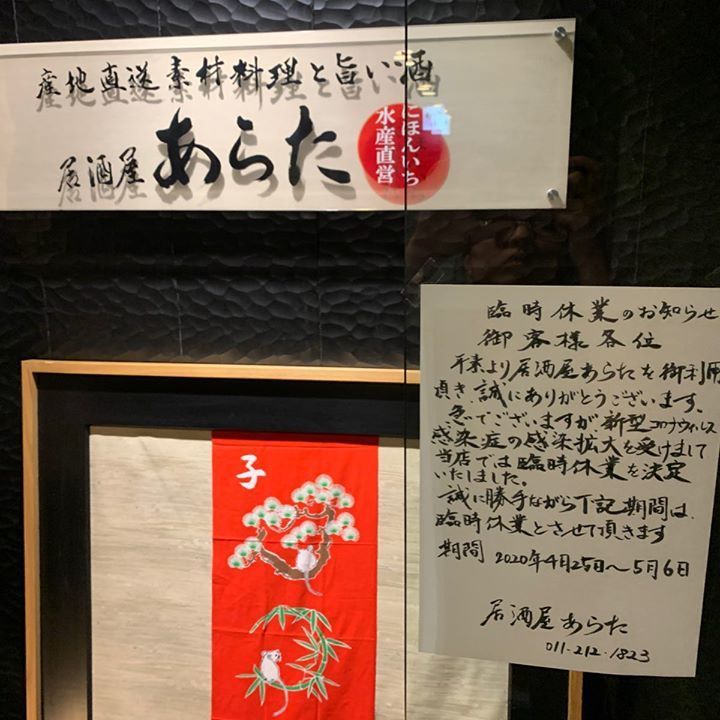 産地直送素材料理と旨い酒
居酒屋 あらた
にほんいち
水産直営
子
臨時休業のお知らせ
御客様各位
平素より居酒屋あらたを御利用
頂き、誠にありがとうございます。
急でございますが新型コロナウィルス
感染症の感染拡大を受けまして
当店では臨時休業を決定
いたしました。
誠に勝手ながら下記期間は、
臨時休業とさせて頂きます
期間 2020年4月25日〜5月6日
居酒屋あらた
011-212-1823